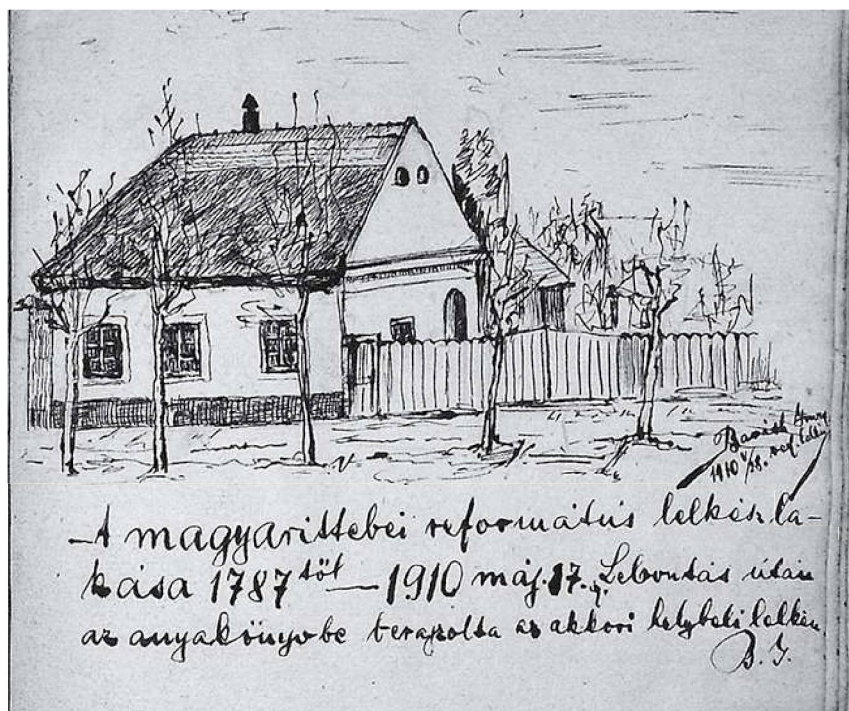 Baráth
1910 V/18. ref. lelk.
A magyarittebei református lelkész la-
kása 1787 től — 1910 máj. 17. Lebontás után
az anyakönyvbe berajzolta az akkori helybeli lelkész
B. I.